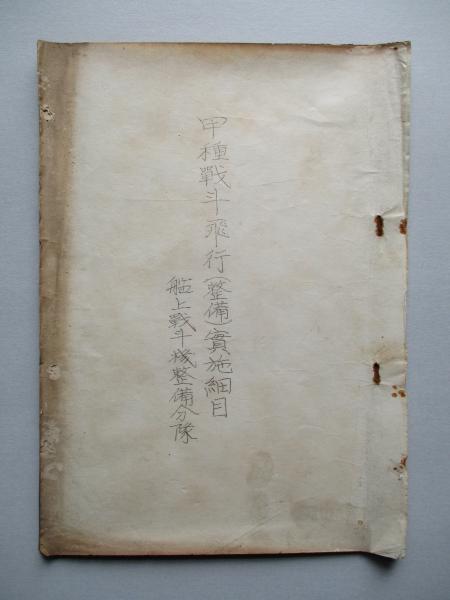 甲種戰斗飛行(整備)實施細目
艦上戰斗機整備分隊